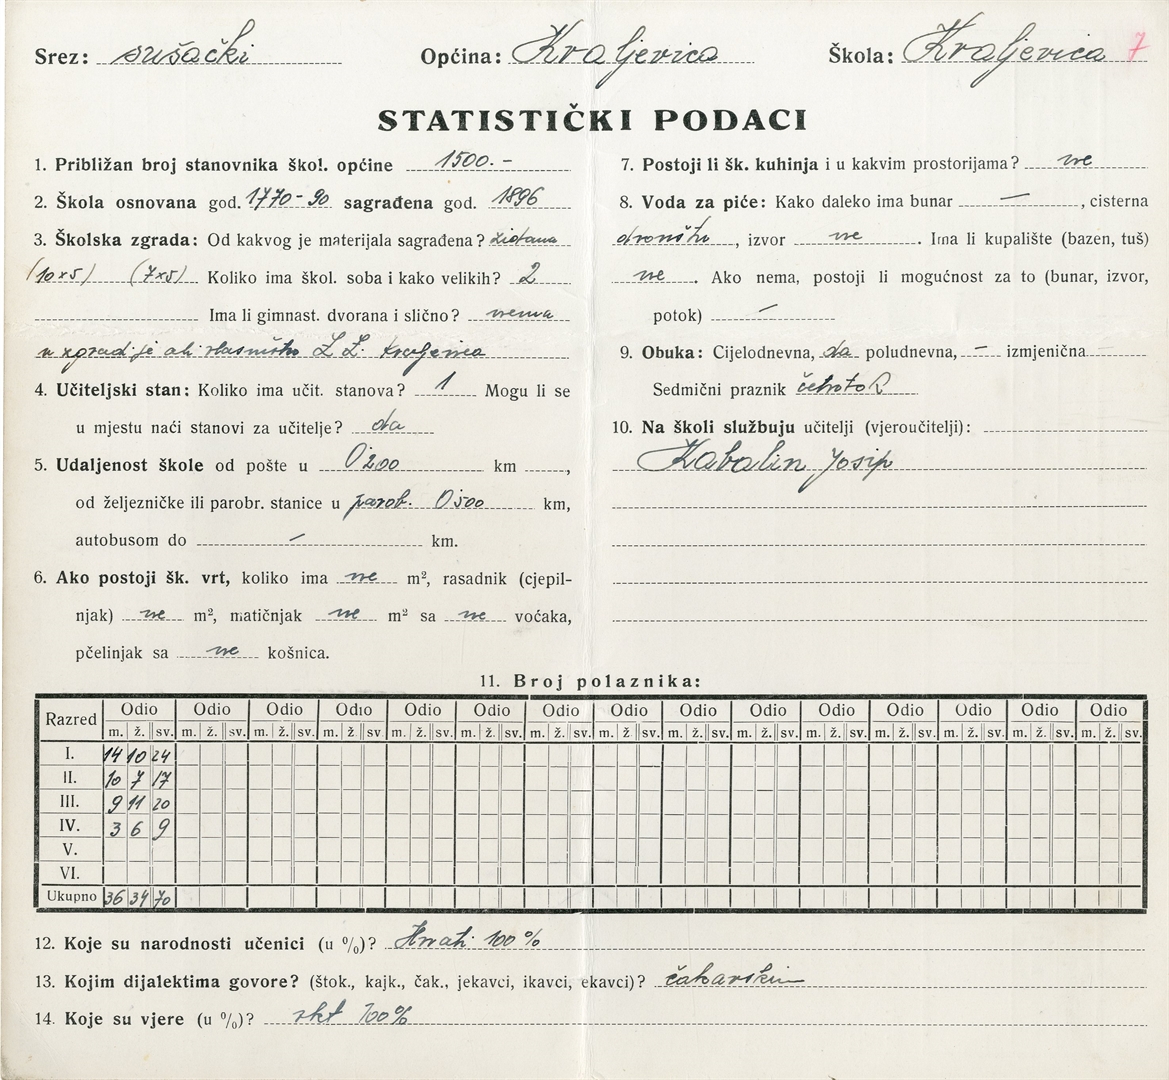 Srez: sušački Općina: Kraljevica Škola: Kraljevica 7
STATISTIČKI PODACI
1. Približan broj stanovnika škol. općine 1500.-
2. Škola osnovana god. 1770-90 sagrađena god. 1896
3. Školska zgrada: Od kakvog je materijala sagrađena? zidana
(10x5) (7x5) Koliko ima škol. soba i kako velikih? 2
Ima li gimnast. dvorana i slično? nema
u zgradi je ali vlasništvo Z Z. Kraljevica
4. Učiteljski stan: Koliko ima učit. stanova? 1 Mogu li se
u mjestu naći stanovi za učitelje? da
5. Udaljenost škole od pošte u 0'200 km ,
od željezničke ili parobr. stanice u parob. 0'500 km,
autobusom do – km.
6. Ako postoji šk. vrt, koliko ima ne m², rasadnik (cjepil-
njak) ne m², matičnjak ne m² sa ne voćaka,
pčelinjak sa ne košnica.
7. Postoji li šk. kuhinja i u kakvim prostorijama? ne
8. Voda za piće: Kako daleko ima bunar – , cisterna
, izvor ne . Ima li kupalište (bazen, tuš)
ne . Ako nema, postoji li mogućnost za to (bunar, izvor,
potok) –
9. Obuka: Cijelodnevna, da poludnevna, – izmjenična –
Sedmični praznik
10. Na školi službuju učitelji (vjeroučitelji):
Kabalin Josip
11. Broj polaznika:
Razred Odio Odio Odio Odio Odio Odio Odio Odio Odio Odio Odio Odio Odio Odio Odio
m. ž. sv. m. ž. sv. m. ž. sv. m. ž. sv. m. ž. sv. m. ž. sv. m. ž. sv. m. ž. sv. m. ž. sv. m. ž. sv. m. ž. sv. m. ž. sv. m. ž. sv. m. ž. sv. m. ž. sv.
I. 14 10 24
II. 10 7 17
III. 9 11 20
IV. 3 6 9
V.
VI.
Ukupno 36 34 70
12. Koje su narodnosti učenici (u %)? Hrvati 100%
13. Kojim dijalektima govore? (štok., kajk., čak., jekavci, ikavci, ekavci)? čakavskim
14. Koje su vjere (u %)? rkt 100%